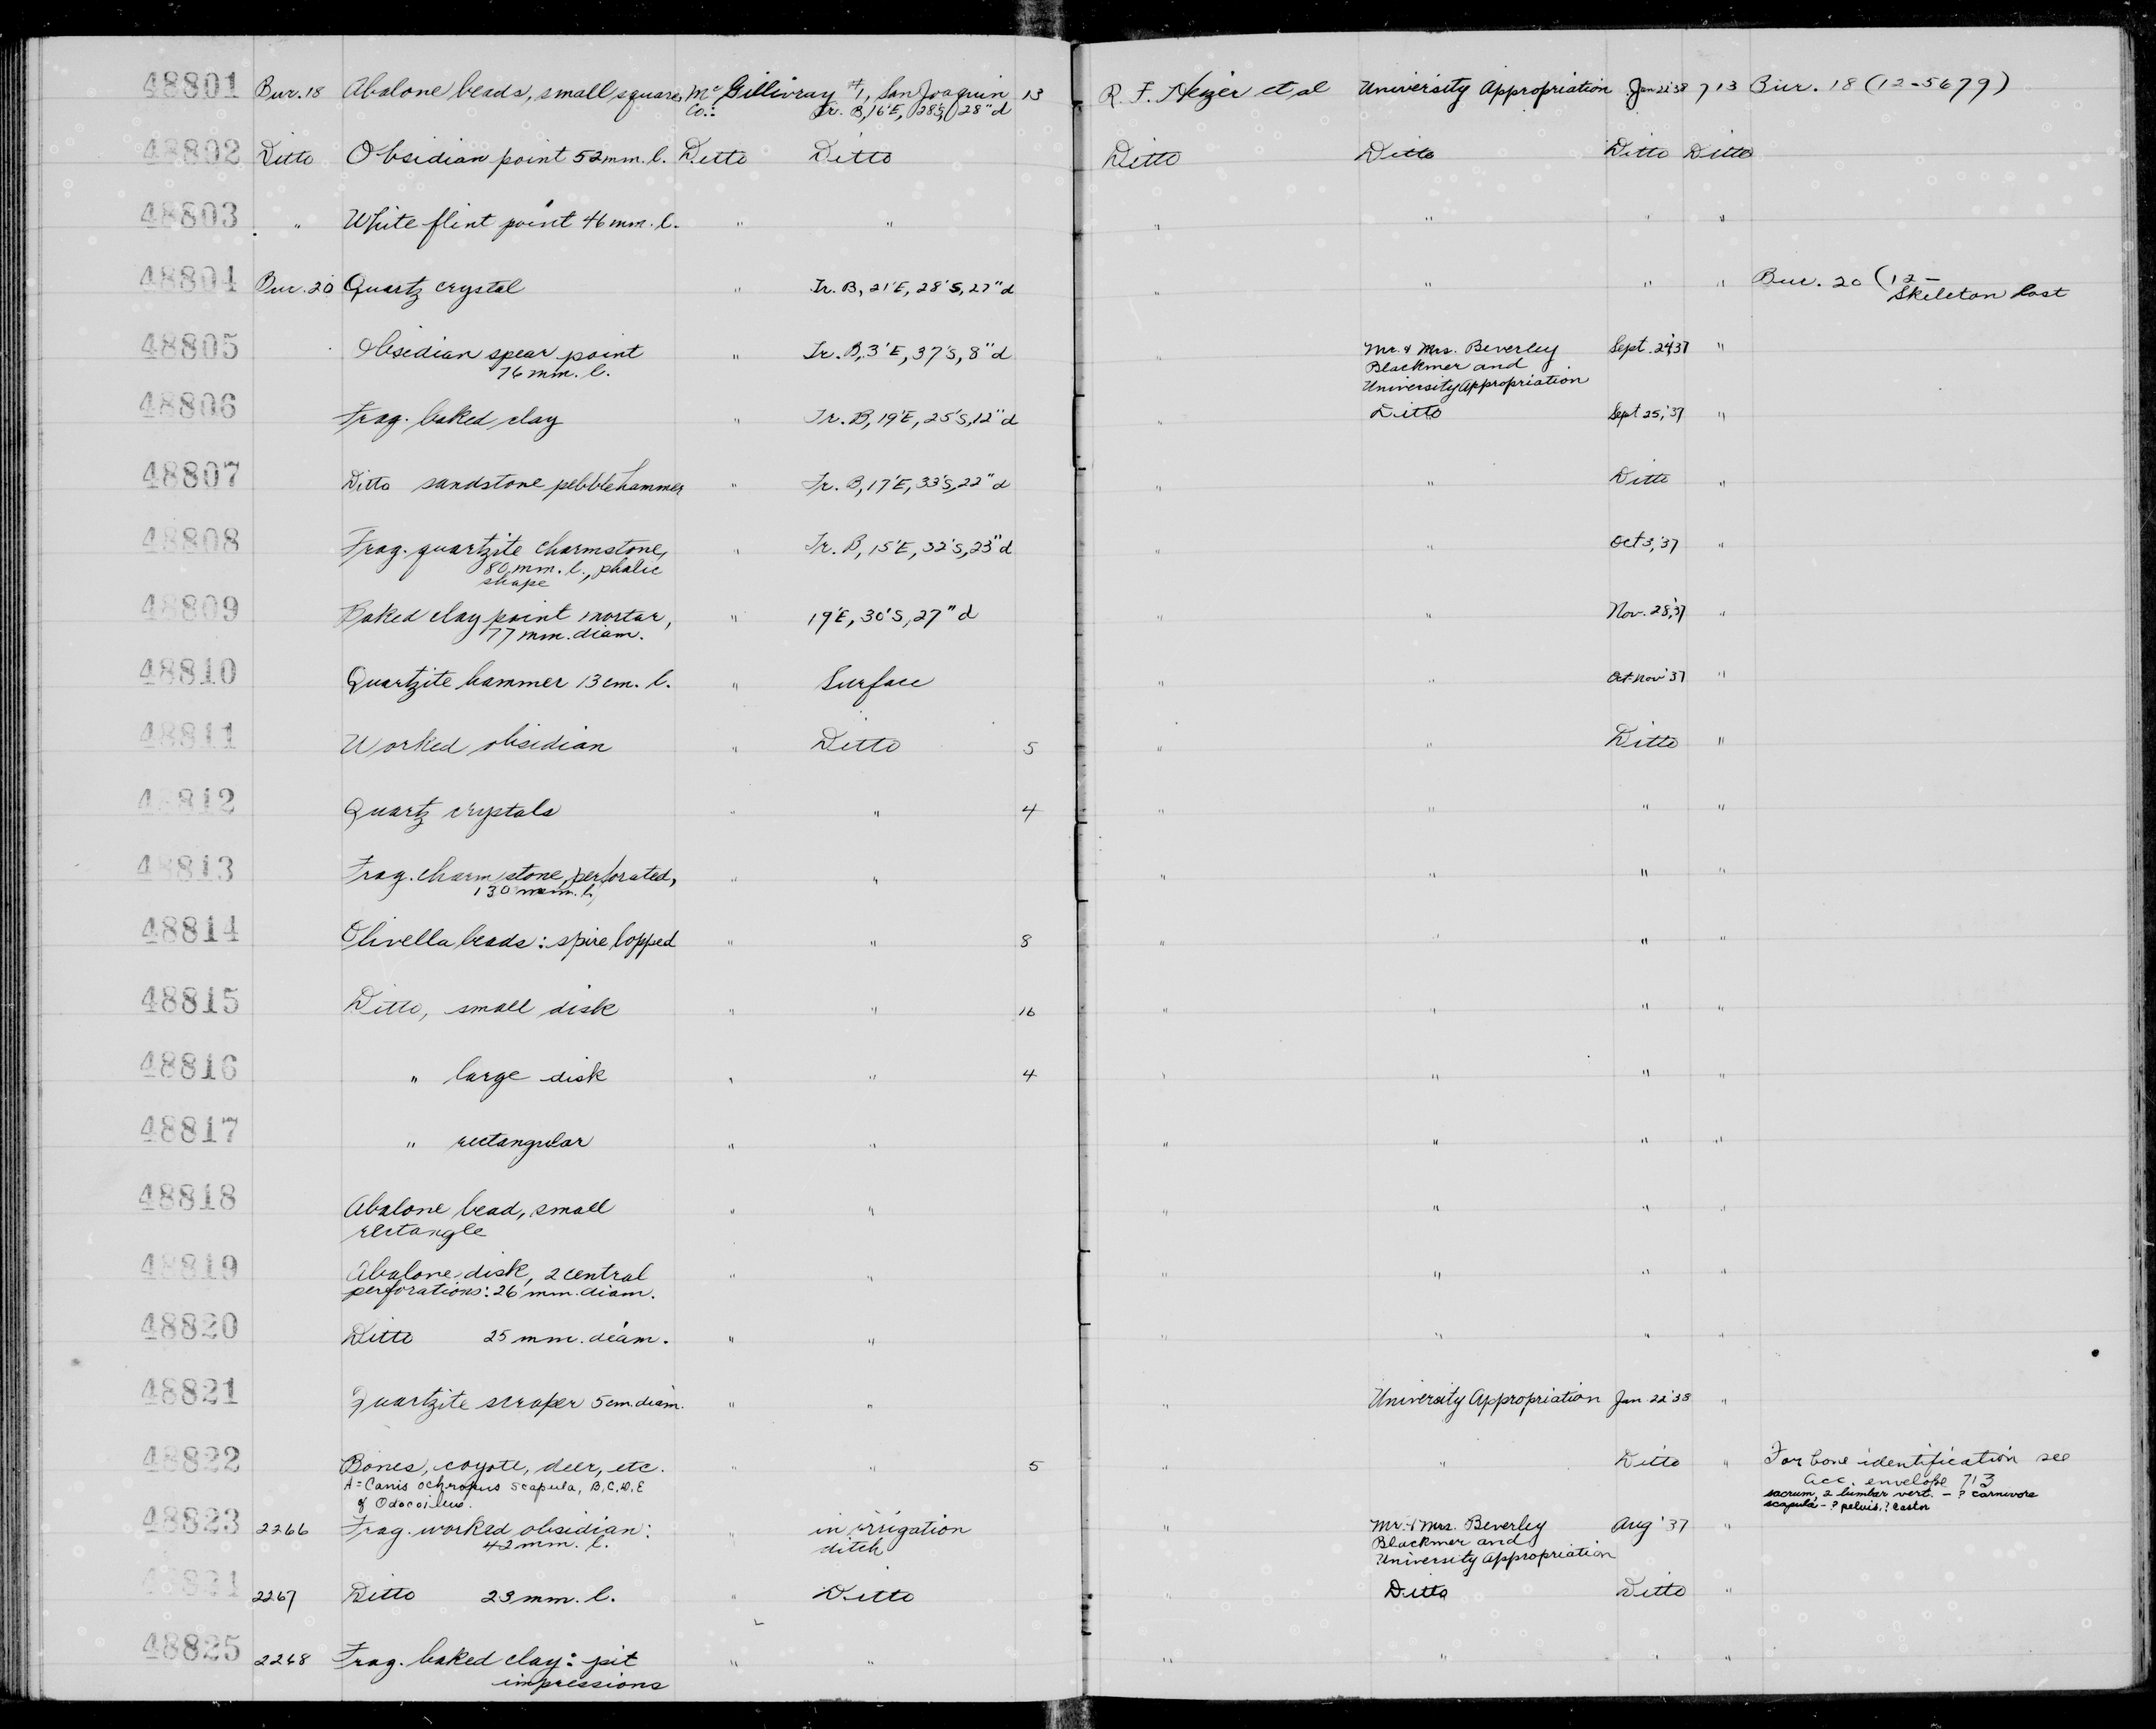 48801 Bur. 18 Abalone beads, small square, McGillivray #1, San Joaquin 13 R. F. Heizer et al University Appropriation Jan 22 '38 713 Bur. 18 (12-5679)
Co.: Tr. B, 16'E, 28'S, 28"d
48802 Ditto Obsidian point 52 mm. l. Ditto Ditto Ditto Ditto Ditto Ditto
48803 " White flint point 46 mm. l. " " " " " "
48804 Bur. 20 Quartz crystal " Tr. B, 21'E, 28'S, 27"d " " " " Bur. 20 (12-
Skeleton lost
48805 Obsidian spear point " Tr. B, 3'E, 37'S, 8"d " Mr. & Mrs. Beverley Sept. 24, '37 "
76 mm. l. Blackmer and
University Appropriation
48806 Frag. baked clay " Tr. B, 19'E, 25'S, 12"d " Ditto Sept 25, '37 "
48807 Ditto sandstone pebble hammer " Tr. B, 17'E, 33'S, 22"d " " Ditto "
48808 Frag. quartzite charmstone, " Tr. B, 15'E, 32'S, 23"d " " Oct 3, '37 "
80 mm. l., phalic
shape
48809 Baked clay paint mortar, " 19'E, 30'S, 27"d " " Nov. 28, '37 "
77 mm. diam.
48810 Quartzite hammer 13 cm. l. " Surface " " Oct-Nov '37 "
48811 Worked obsidian " Ditto 5 " " Ditto "
48812 Quartz crystals " " 4 " " " "
48813 Frag. charm stone, perforated, " " " " " "
130 mm. l.
48814 Olivella beads: spire lopped " " 8 " " " "
48815 Ditto, small disk " " 16 " " " "
48816 " large disk " " 4 " " " "
48817 " rectangular " " " " " "
48818 Abalone bead, small " " " " " "
rectangle
48819 Abalone disk, 2 central " " " " " "
perforations: 26 mm. diam.
48820 Ditto 25 mm. diam. " " " " " "
48821 Quartzite scraper 5 cm. diam. " " " University Appropriation Jan. 22 '38 "
48822 Bones, coyote, deer, etc. " " 5 " " Ditto " For bone identification see
A = Canis ochropus scapula, B, C, D, E acc. envelope 713
of Odocoileus. sacrum, 2 lumbar vert. - ? carnivore
scapula - ? pelvis, ? castor
48823 2266 Frag. worked obsidian: " in irrigation " Mr. & Mrs. Beverley Aug '37 "
42 mm. l. ditch Blackmer and
University Appropriation
48824 2267 Ditto 23 mm. l. " Ditto " Ditto Ditto "
48825 2268 Frag. baked clay: pit " " " " " "
impressions